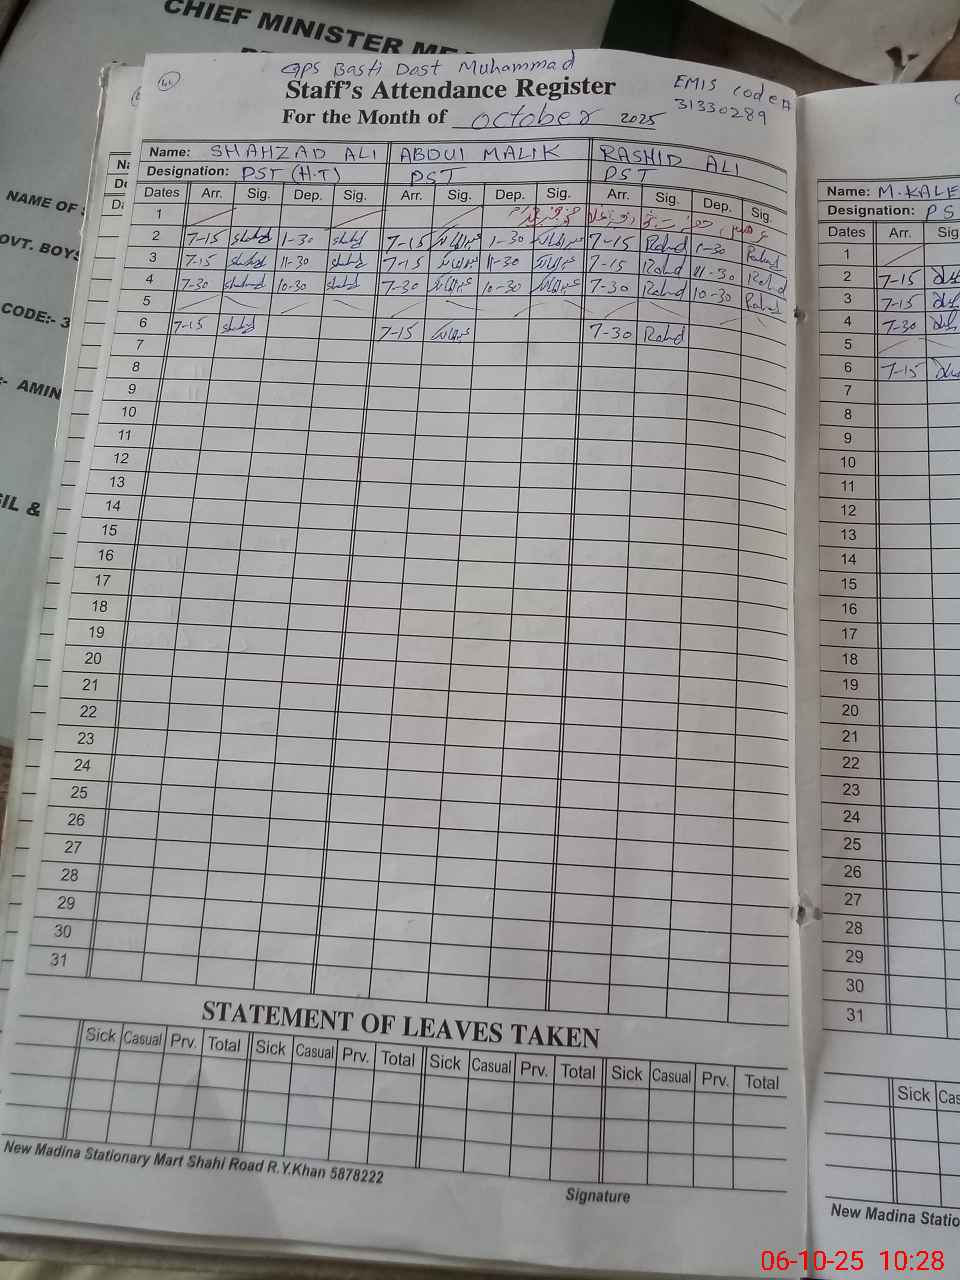 CHIEF MINISTER ME
NAME OF
OVT. BOYS
CODE:- 3
:- AMIN
SIL &
GPS Basti Dost Muhammad
Staff's Attendance Register
EMIS code#
31330289
For the Month of October 2025
Name: SHAHZAD ALI ABDUL MALIK RASHID ALI
Designation: PST (H.T) PST PST
Dates Arr. Sig. Dep. Sig. Arr. Sig. Dep. Sig. Arr. Sig. Dep. Sig.
1
2 7-15 1-30 7-15 1-30 7-15 Rashid 1-30 Rashid
3 7-15 11-30 7-15 11-30 7-15 Rashid 11-30 Rashid
4 7-30 10-30 7-30 10-30 7-30 Rashid 10-30 Rashid
5
6 7-15 7-15 7-30 Rashid
7
8
9
10
11
12
13
14
15
16
17
18
19
20
21
22
23
24
25
26
27
28
29
30
31
STATEMENT OF LEAVES TAKEN
Sick Casual Prv. Total Sick Casual Prv. Total Sick Casual Prv. Total Sick Casual Prv. Total
New Madina Stationary Mart Shahi Road R.Y.Khan 5878222
Signature
Name: M.KALE
Designation: PS
Dates Arr. Sig
1
2 7-15
3 7-15
4 7-30
5
6 7-15
7
8
9
10
11
12
13
14
15
16
17
18
19
20
21
22
23
24
25
26
27
28
29
30
31
Sick Cas
New Madina Statio
06-10-25 10:28